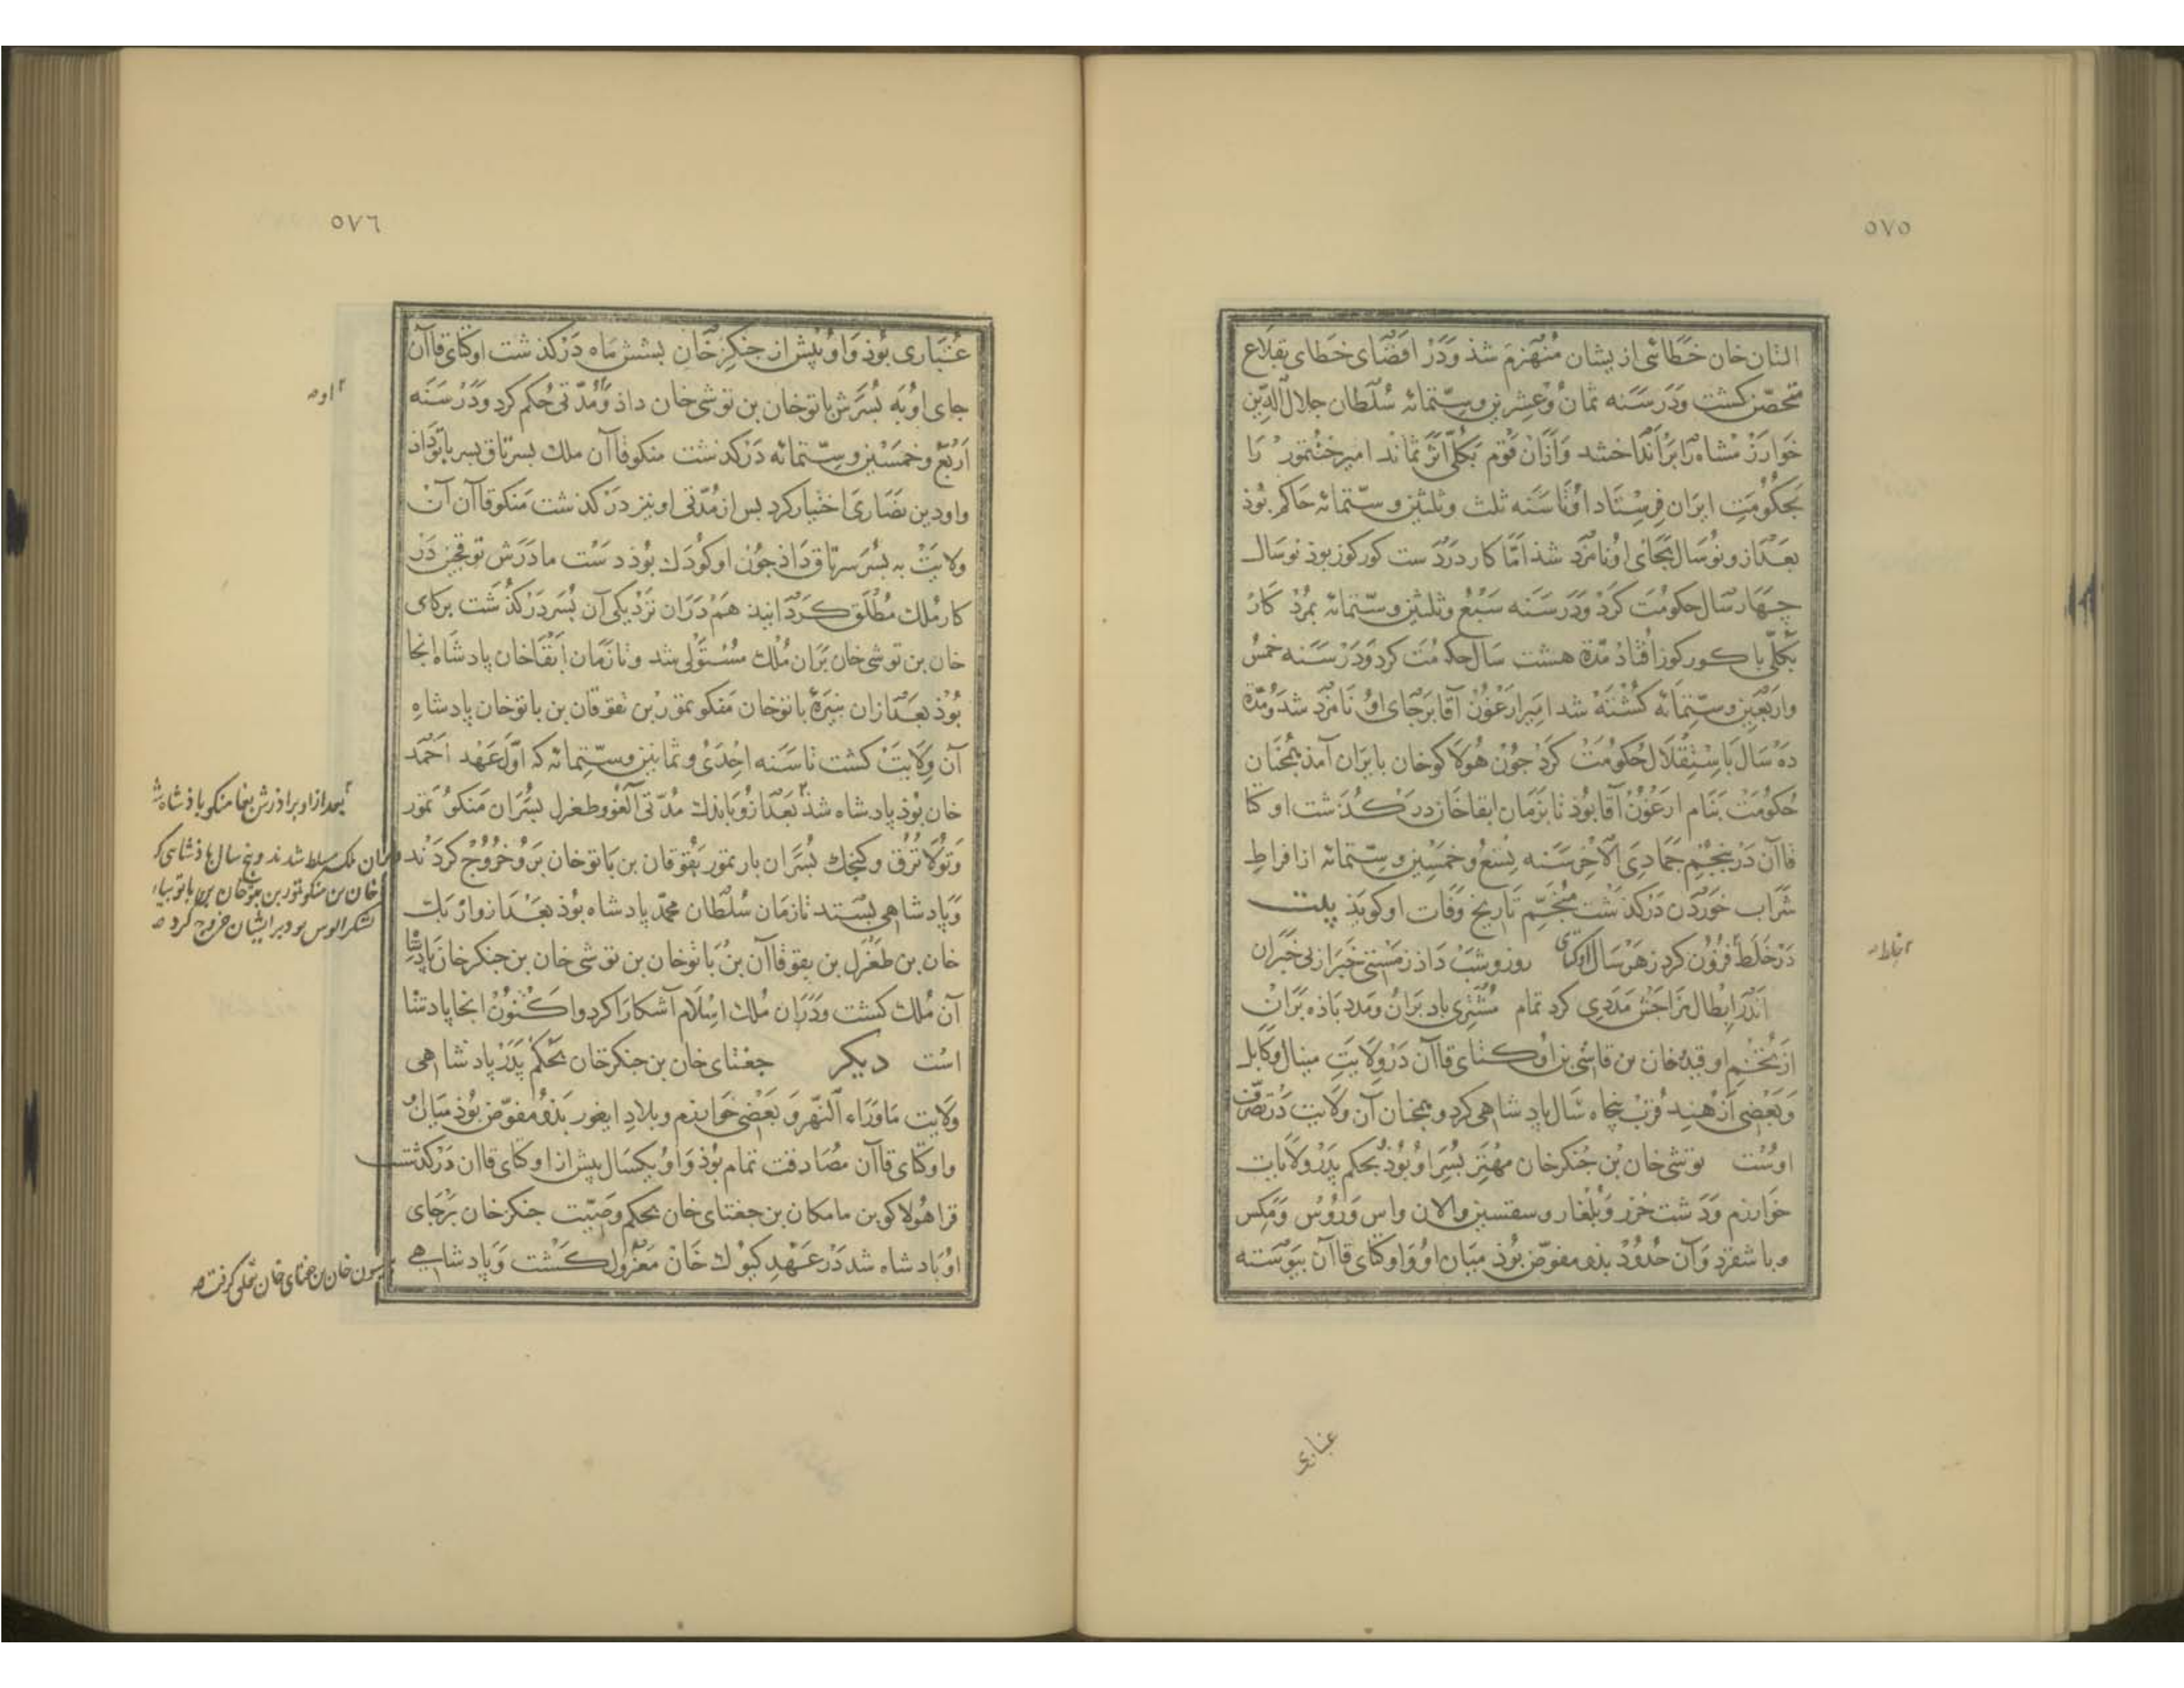 ٥٧٥
التان خان خطائی ازیشان منهزم شذ ودر اقصای خطای بقلاع
متحصّن کشت ودر سنه ثمان وعشرین وستّمائه سلطان جلال الدّین
خوارزمشاه را برانداختند وازان قوم بکلّی اثر نماند امیر جنتمور را
بحکومت ایران فرستاد او تا سنه ثلث وثلثین وستّمائه حاکم بوذ
بعد ازو نوسال بجای او نامزد شذ امّا کار در دست کورکوز بوذ نوسال
چهار سال حکومت کرد ودر سنه سبع وثلثین وستّمائه بمرد کار
بکلّی با کورکوز افتاد مدّة هشت سال حکومت کرد ودر سنه خمس
واربعین وستّمائه کشته شد امیر ارغون آقا بر جای او نامزد شد ومدّة
ده سال باستقلال حکومت کرد جون هولاکوخان بایران آمذ همجنان
حکومت بنام ارغون آقا بوذ تا بزمان ابقاخان درکذشت اوکتا
قاآن در بنجم جمادی الآخر سنه تسع وخمسین وستّمائه از افراط
شراب خوردن درکذشت منجّم تاریخ وفات او کویذ بیت
در خلط فزون کرد ز هر سال اوکتای روز وشب داذ ز مستی خبر از بی خبران
اندر ابطال مزاجش مددی کرد تمام مشتری باد بران ومدد باده بران
از تخم او قیدو خان بن قاشی بن اوکتای قاآن در ولایت مینال وکابل
وبعضی از هند قرب پنجاه سال پادشاهی کرد وهمجنان آن ولایت در تصرّف
اوست توشی خان بن جنکزخان مهتر بسر او بوذ بحکم پدر ولایات
خوارزم ودشت خزر وبلغار وسقسین والان واس وروس ومکس
وباشقرد وآن حدود بذو مفوّض بوذ میان او واوکتای قاآن بیوسته
عباری
٥٧٦
غباری بوذ واو بیش از جنکز خان بشش ماه درکذشت اوکتای قاآن
جای او به بسرش باتوخان بن توشی خان داذ ومدّتی حکم کرد ودر سنه
اربع وخمسین وستّمائه درکذشت منکوقاآن ملک بسرتاق بسر باتو داذ
واو دین نصاری اختیار کرد بس از مدّتی او نیز درکذشت منکوقاآن آن
ولایت به بسر سرتاق داذ جون او کودک بوذ دست مادرش توقجین در
کار ملک مطلق کردانیذ هم دران نزدیکی آن بسر درکذشت برکای
خان بن توشی خان بران ملک مستولی شد وتا زمان ابقاخان پادشاه انجا
بوذ بعد ازان نبیرۀ باتوخان منکوتمور بن تقوقان بن باتوخان پادشاه
آن ولایت کشت تا سنه احدی وثمانین وستّمائه که اوّل عهد احمد
خان بوذ پادشاه شذ بعد ازو باندک مدّتی الغو وطغرل بسران منکو تمور
وتولا ترق وکنجک بسران بار تمور بقوقان بن باتوخان برو خروج کردند
وپادشاهی بستند تا زمان سلطان محمّد پادشاه بوذ بعد ازو ازبک
خان بن طغرل بن بقوقاآن بن باتوخان بن توشی خان بن جنکزخان پادشاه
آن ملک کشت ودران ملک اسلام آشکارا کرد واکنون انجا پادشا
است دیکر جغتای خان بن جنکزخان بحکم پدر پادشاهی
ولایت ماوراء النّهر وبعضی خوارزم وبلاد ایغور بذو مفوّض بوذ میان او
واوکتای قاآن مصادقت تمام بوذ واو بیکسال بیش از اوکتای قاآن درکذشت
قرا هولاکو بن مامکان بن جغتای خان بحکم وصیّت جنکز خان بر جای
او پادشاه شد در عهد کیوک خان معزول کشت وپادشاهی
او
بعد از او براذرش بغا منکو باذشاه شد
بران ملک مسلط شدند وپنج سال باذشاهی کرد
خان بن منکوتمور بن بقوخان بن باتو بیا
لشکر الوس بود بر ایشان خروج کرد
یسون خان بن جغتای خان تعلق کرفت